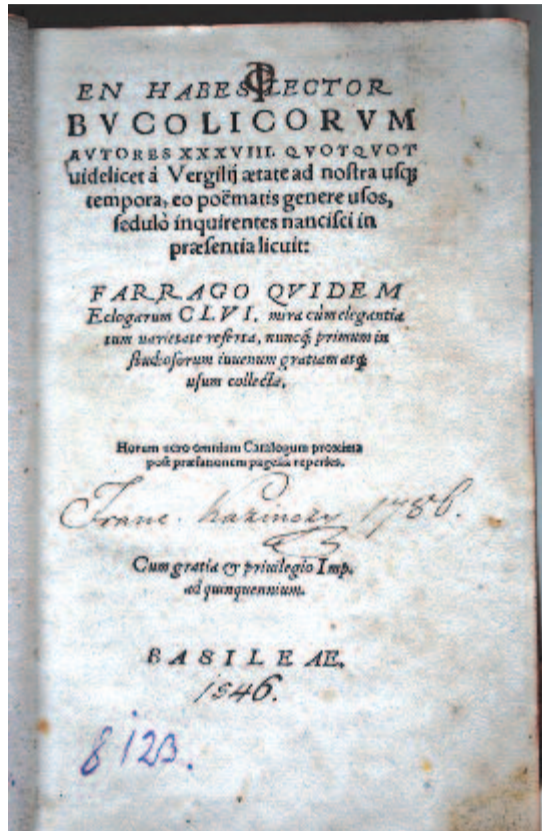 EN HABES LECTOR
BVCOLICORVM
AVTORES XXXVIII. QVOTQVOT
uidelicet à Vergilij ætate ad nostra usqȝ
tempora, eo poëmatis genere usos,
sedulò inquirentes nancisci in
præsentia licuit:
FARRAGO QVIDEM
Eclogarum CLVI. mira cùm elegantia
tum uarietate referta, nuncqȝ primum in
studiosorum iuuenum gratiam atqȝ
usum collecta.
Horum uero omnium Catalogum proxima
post præfationem pagella reperies.
Franc. Kazinczy 1786.
Cum gratia & priuilegio Imp.
ad quinquennium.
BASILEAE.
1546.
8 123.